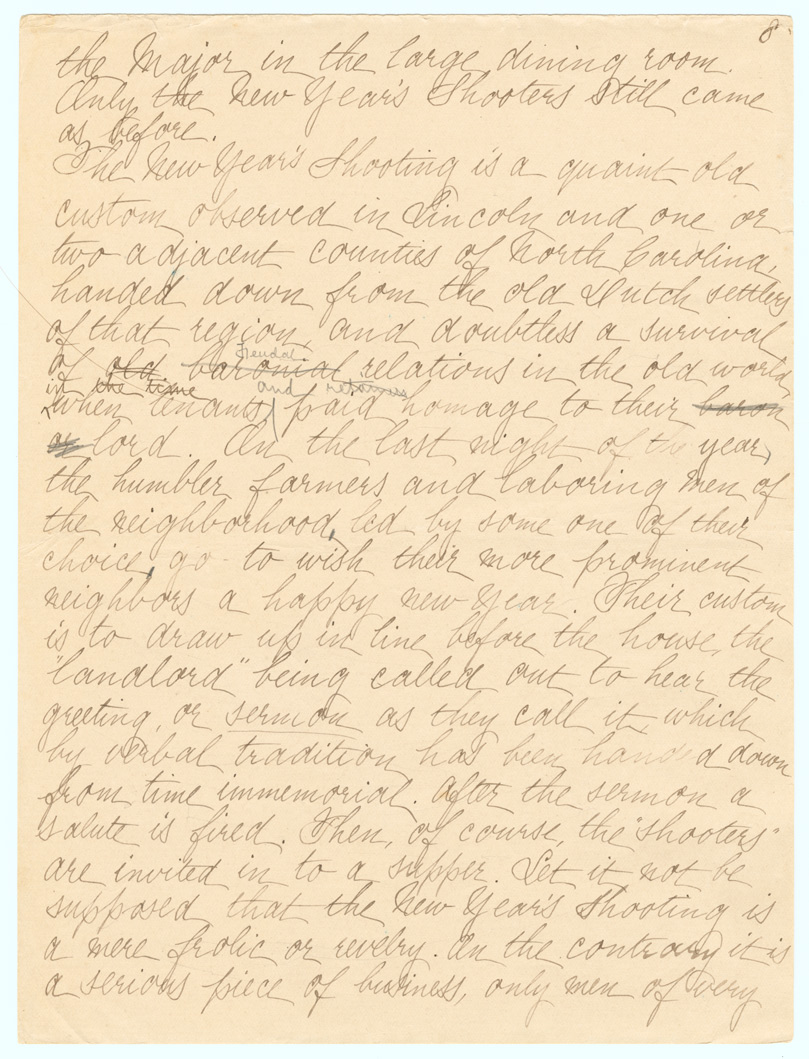 8
the Major in the large dining room.
Only the New Year's Shooters still came
as before.
The New Year's Shooting is a quaint old
custom observed in Lincoln and one or
two adjacent counties of North Carolina,
handed down from the old Dutch settlers
of that region, and doubtless a survival
feudal
of old baronial relations in the old world,
in the time and retainers
when tenants paid homage to their baron
or lord. On the last night of the year,
the humbler farmers and laboring men of
the neighborhood, led by some one of their
choice, go to wish their more prominent
neighbors a happy new year. Their custom
is to draw up in line before the house, the
"landlord" being called out to hear the
greeting, or sermon as they call it, which
by verbal tradition has been handed down
from time immemorial. After the sermon a
salute is fired. Then, of course, the "shooters"
are invited in to a supper. Let it not be
supposed that the New Year's Shooting is
a mere frolic or revelry. On the contrary it is
a serious piece of business, only men of very